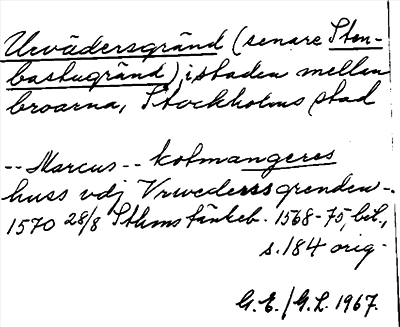 Urvädersgränd (senare Sten-
bastugränd), i staden mellan
broarna, Stockholms stad
-- Marcus -- kolmangeres
huss vdj Vrwederssgrenden -.
1570 28/8 Sthms tänkeb. 1568-75, bil.,
s. 184 orig.
G.E./G.L. 1967.